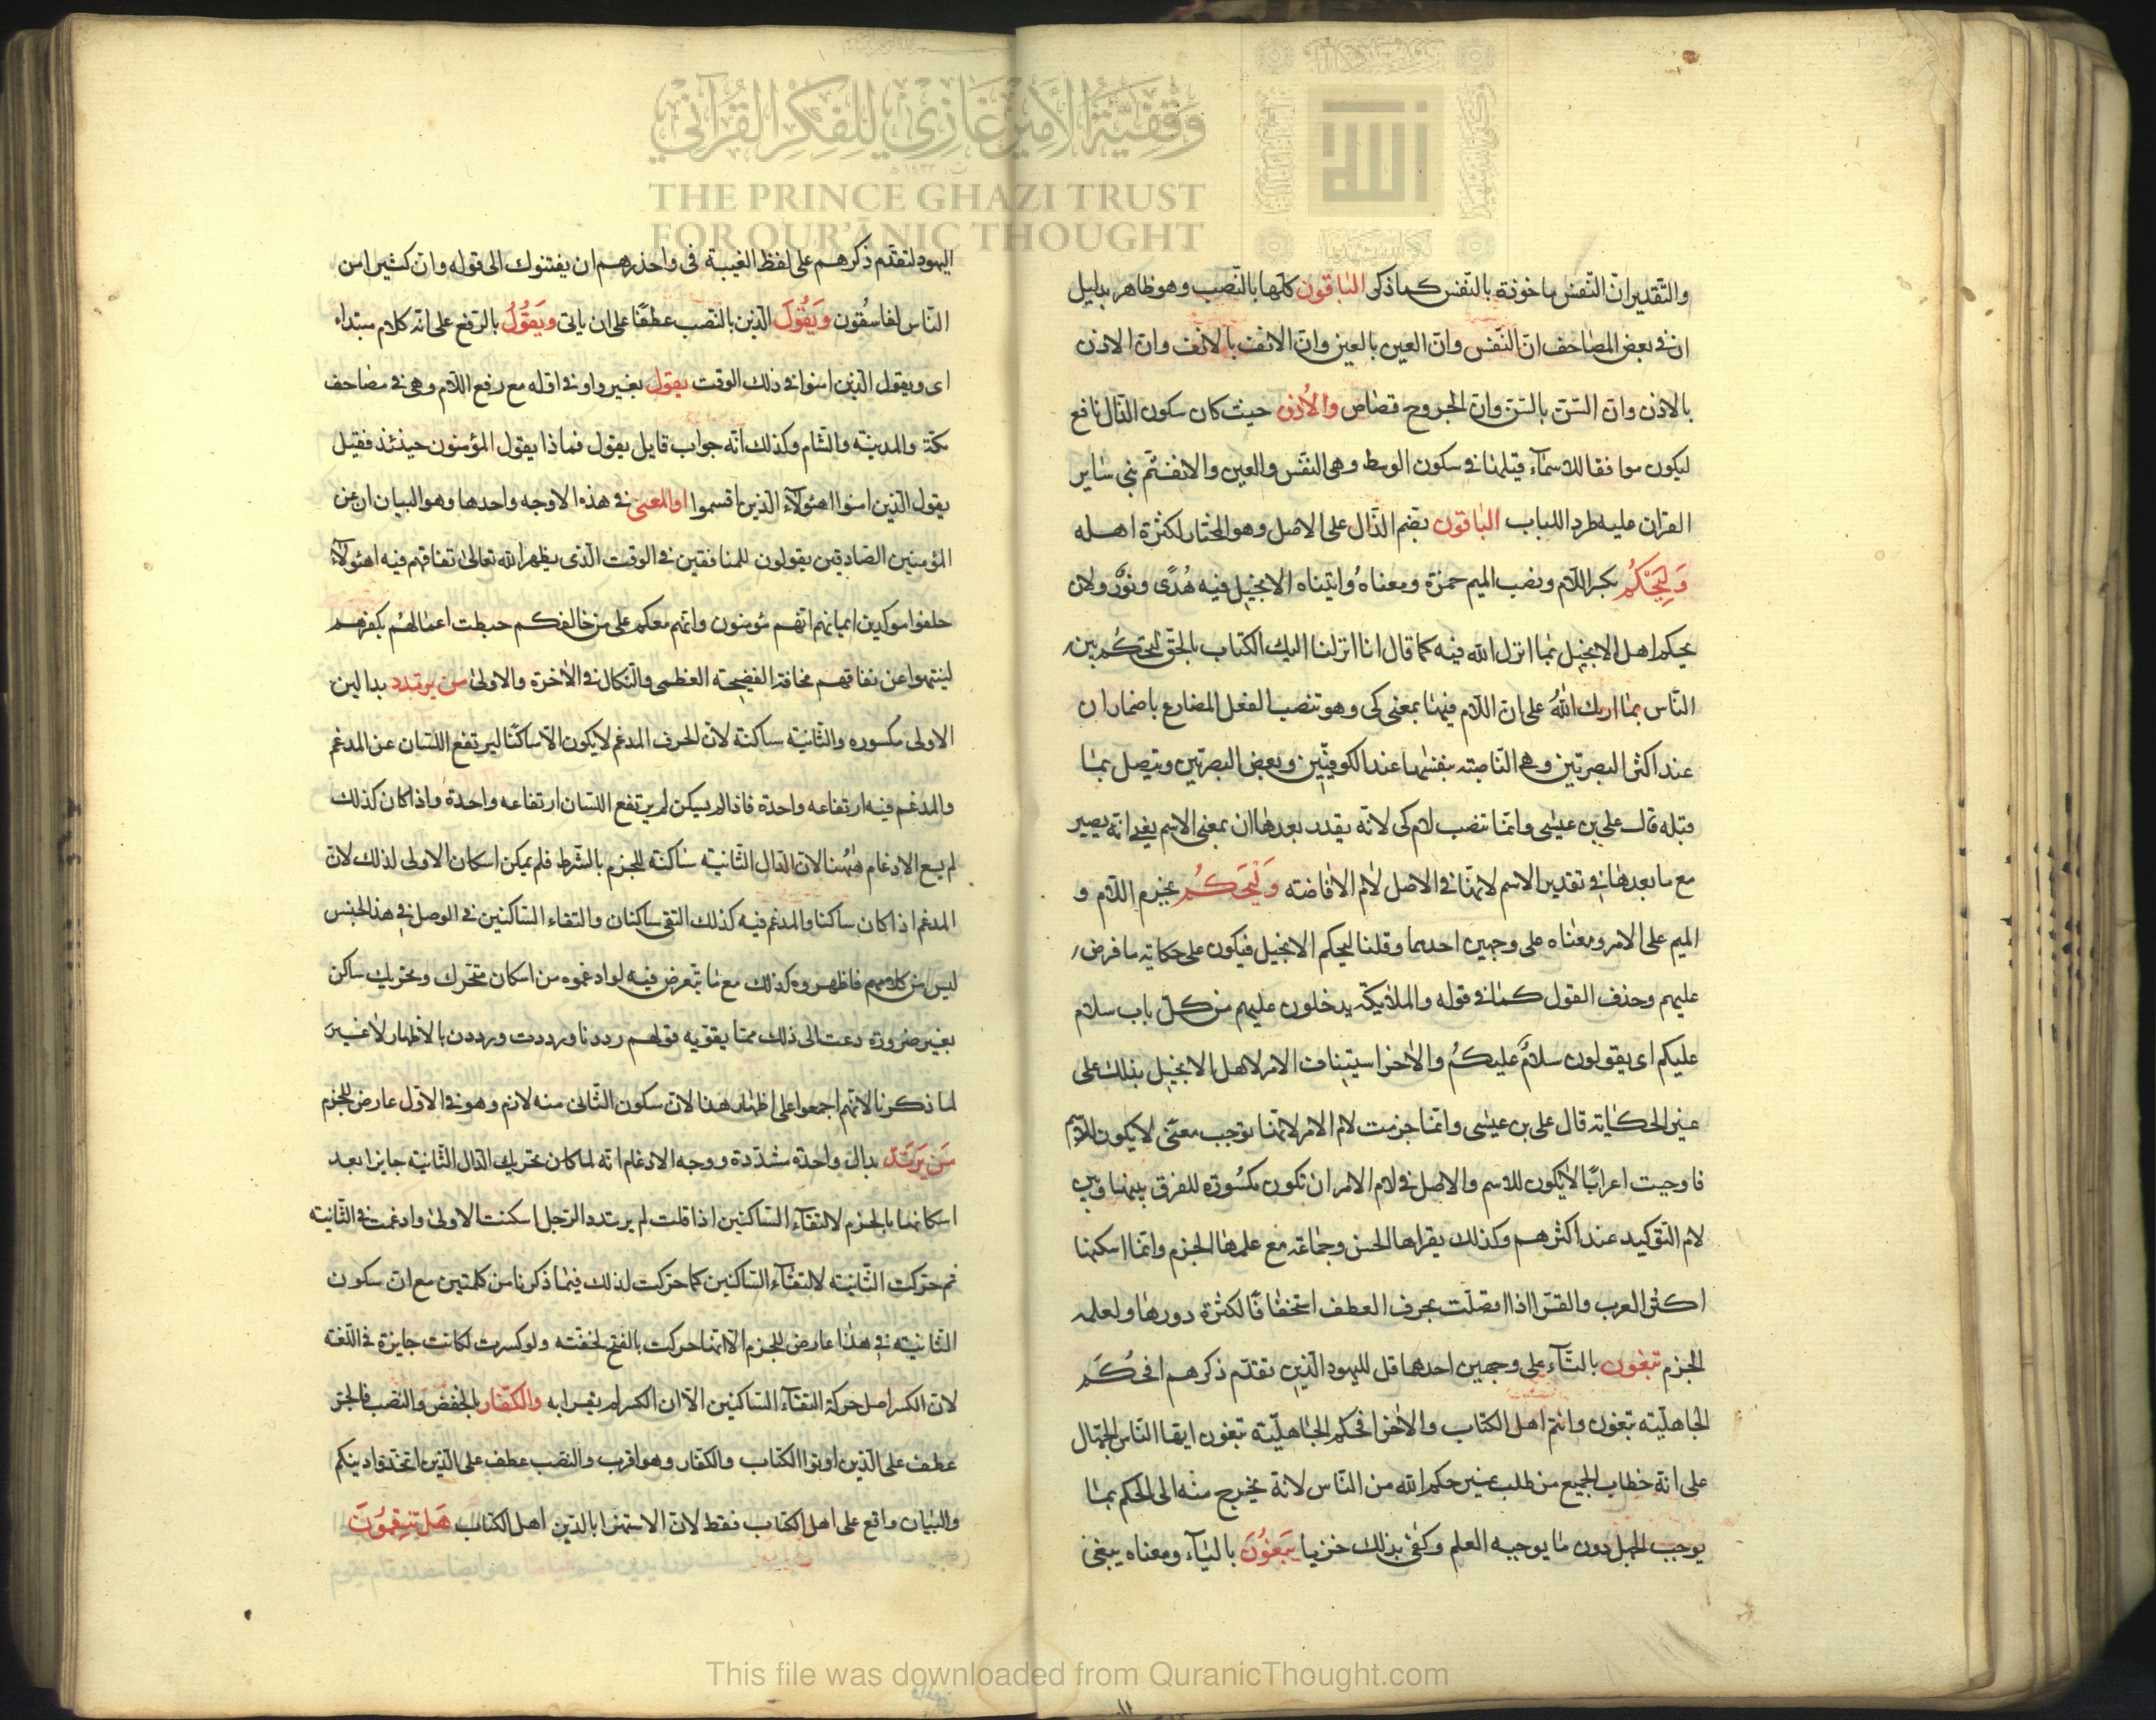 وقفية الأمير غازي للفكر القرآني
THE PRINCE GHAZI TRUST
FOR QUR'ĀNIC THOUGHT
والتقدير ان النفس ماخوذة بالنفس كما ذكى الباقون كلها بالنصب وهو ظاهر بدليل
ان فى بعض المصاحف ان النفس وان العين بالعين وان الانف بالانف وان الاذن
بالاذن وان السن بالسن وان الجروح قصاص والأذن حيث كان سكون الذال نافع
ليكون موافقا للاسماء قبلها فى سكون الوسط وهى النفس والعين والانف ثم بنى ساير
القران عليه طرد اللباب الباقون بضم الذال على الاصل وهو المختار لكثرة اهله
وَلِيَحْكُمَ بكسر اللام ونصب الميم حمزة ومعناهُ واتيناه الانجيل فيه هُدًى ونورٌ ولان
يحكم اهل الانجيل بما انزل الله فيه كما قال انا انزلنا اليك الكتاب بالحق لتحكُم بين
الناس بما اريك اللهُ على ان اللام فيها بمعنى كى وهو تنصب الفعل المضارع باضمار ان
عند اكثر البصريين وهى الناصبته بنفسها عند الكوفيين وبعض البصريين ويتصل بما
قبله قال على بن عيسى وانما تنصب لام كى لانه يقدر بعدها ان بمعنى الاسم يعنى انه يصير
مع ما بعدها فى تقدير الاسم لانها فى الاصل لام الاضافته وَلْيَحكُم بجزم اللام و
الميم على الامر ومعناه على وجهين احدهما وقلنا ليحكم الانجيل فيكون على حكاية ما فرض
عليهم وحذف القول كما فى قوله والملايكة يدخلون عليهم من كل باب سلام
عليكم اى يقولون سلامٌ عليكُم والاخر استيناف الامر لاهل الانجيل بذلك على
غير الحكاية قال على بن عيسى وانما جزمت لام الامر لانها توجب معنى لا يكون للاسم
فاوجبت اعرابًا لا يكون للاسم والاصل فى لام الامر ان تكون مكسورة للفرق بينها وبين
لام التوكيد عند اكثرهم وكذلك يقراها الحسن وجماعة مع علمها الجزم وانما اسكنها
اكثر العرب والقرا اذا اتصلت بحرف العطف استخفافًا لكثرة دورها ولعلمه
الجزم تبغون بالتاء على وجهين احدها قل لليهود الذين تقدم ذكرهم افحكم
الجاهلية تبغون وانتم اهل الكتاب والاخر افحكم الجاهلية تبغون ايها الناس الجهال
على انه خطاب لجميع من طلب غير حكم الله من الناس لانه يخرج منه الى الحكم بما
يوجب الجهل دون ما يوجبه العلم وكفى بذلك خزيا يَبغُونَ بالياء ومعناه يبغى
اليهود لتقدم ذكرهم على لفظ الغيبة فى واحذرهم ان يفتنوك الى قوله وان كثيرا من
الناس لفاسقون وَيَقُولَ الذين بالنصب عطفًا على ان ياتى ويَقُولُ بالرفع على انه كلام مبتداء
اى ويقول الذين امنوا فى ذلك الوقت يقول بغير واو فى اوله مع رفع اللام وهى فى مصاحف
مكة والمدينة والشام وكذلك انه جواب قايل يقول فماذا يقول المؤمنون حينئذ فقيل
يقول الذين امنوا اهؤلاء الذين اقسموا او المعنى فى هذه الاوجه واحدها وهو البيان ان عن
المؤمنين الصادقين يقولون للمنافقين فى الوقت الذى يظهر الله تعالى نفاقهم فيه اهؤلاء
حلفوا موكدين ايمانهم انهم مؤمنون وانهم معكم على من خالفكم حبطت اعمالهُم بكفرهم
لينتهوا عن نفاقهم مخافة الفضيحة العظمى والنكال فى الاخرة والاولى من يرتدد بدالين
الاولى مكسوره والثانية ساكنة لان الحرف المدغم لا يكون الا ساكنًا ليرتفع اللسان عن المدغم
والمدغم فيه ارتفاعه واحدة فاذا لم يسكن لم يرتفع اللسان ارتفاعه واحدة واذا كان كذلك
لم يسع الادغام ههُنا لان الدال الثانية ساكنة للجزم بالشرط فلم يمكن اسكان الاولى لذلك لان
المدغم اذا كان ساكنا والمدغم فيه كذلك التقى ساكنان والتقاء الساكنين فى الوصل فى هذا الجنس
ليس من كلامهم فاظهروه كذلك مع ما يتعرض فيه لو ادغموه من اسكان متحرك وتحريك ساكن
بغير ضرورة دعت الى ذلك مما يقويه قولهم رددنا ورددت ورددن بالاظهار لا غير
لما ذكرنا لانهم اجمعوا على اظهار هذا لان سكون الثانى منه لازم وهو فى الاول عارض للجزم
مَن يَرتَدَّ بدال واحدة مشددة ووجه الادغام انه لما كان تحريك الدال الثانية جايزا بعد
اسكانها بالجزم لالتقاء الساكنين اذا قلت لم يرتدد الرجل اسكنت الاولى وادغمت فى الثانية
ثم حركت الثانية لالتقاء الساكنين كما حركت لذلك فيما ذكرنا من كلمتين مع ان سكون
الثانية فى هذا عارض للجزم الا انها حركت بالفتح لخفته ولو كسرت لكانت جايزة فى اللغة
لان الكسر اصل حركة التقاء الساكنين الا ان الكسر لم يقرا به والكفار بالخفض والنصب فالجر
عطف على الذين اوتوا الكتاب والكفار وهو اقرب والنصب عطف على الذين اتخذوا دينكم
والبيان واقع على اهل الكتاب فقط لان الاستهزا بالدين اهل الكتاب هَل تَنقِمُونَ
This file was downloaded from QuranicThought.com